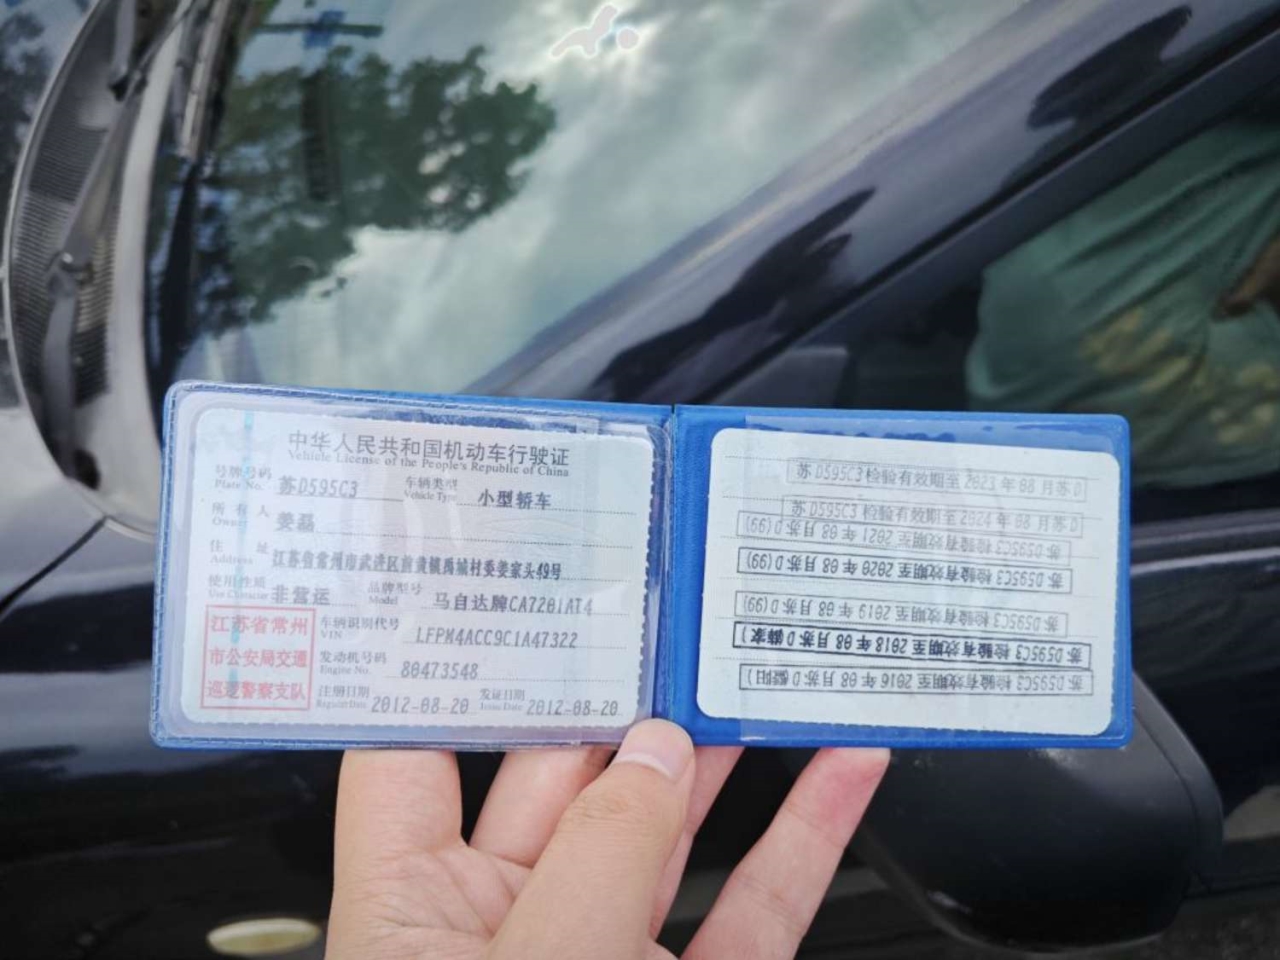 中华人民共和国机动车行驶证
Vehicle License of the People's Republic of China
号牌号码 苏D595C3 车辆类型 小型轿车
Plate No. Vehicle Type
所有人 姜磊
Owner
住址 江苏省常州市武进区前黄镇禹城村委姜家头49号
Address
使用性质 非营运 品牌型号 马自达牌CA7201AT4
Use Character Model
江苏省常州
市公安局交通
巡逻警察支队
车辆识别代号 LFPM4ACC9C1A47322
VIN
发动机号码 80473548
Engine No.
注册日期 2012-08-20 发证日期 2012-08-20
Register Date Issue Date
苏D595C3检验有效期至2023年08月苏D
苏D595C3检验有效期至2024年08月苏D
苏D595C3检验有效期至2021年08月苏D(99)
苏D595C3检验有效期至2020年08月苏D(99)
苏D595C3检验有效期至2019年08月苏D(99)
苏D595C3检验有效期至2018年08月苏D
苏D595C3检验有效期至2016年08月苏D